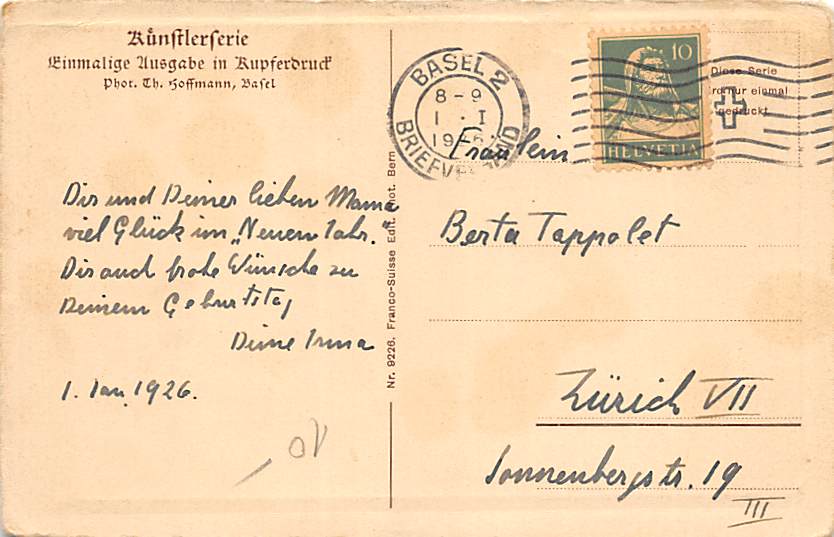 Künstlerserie
Einmalige Ausgabe in Kupferdruck
Phot. Th. Hoffmann, Basel
Dir und Deiner lieben Mama
viel Glück im „Neuen Jahr."
Dir auch frohe Wünsche zu
Deinem Geburtstag
Deine Irma
1. Jan. 1926.
Nr. 9226. Franco-Suisse Edit. Phot. Bern
BASEL 2
8-9
1·I
1926
BRIEFVERSAND
10
HELVETIA
Diese Serie
wird nur einmal
gedruckt
Fräulein
Berta Tappolet
Zürich VII
Sonnenbergstr. 19
III